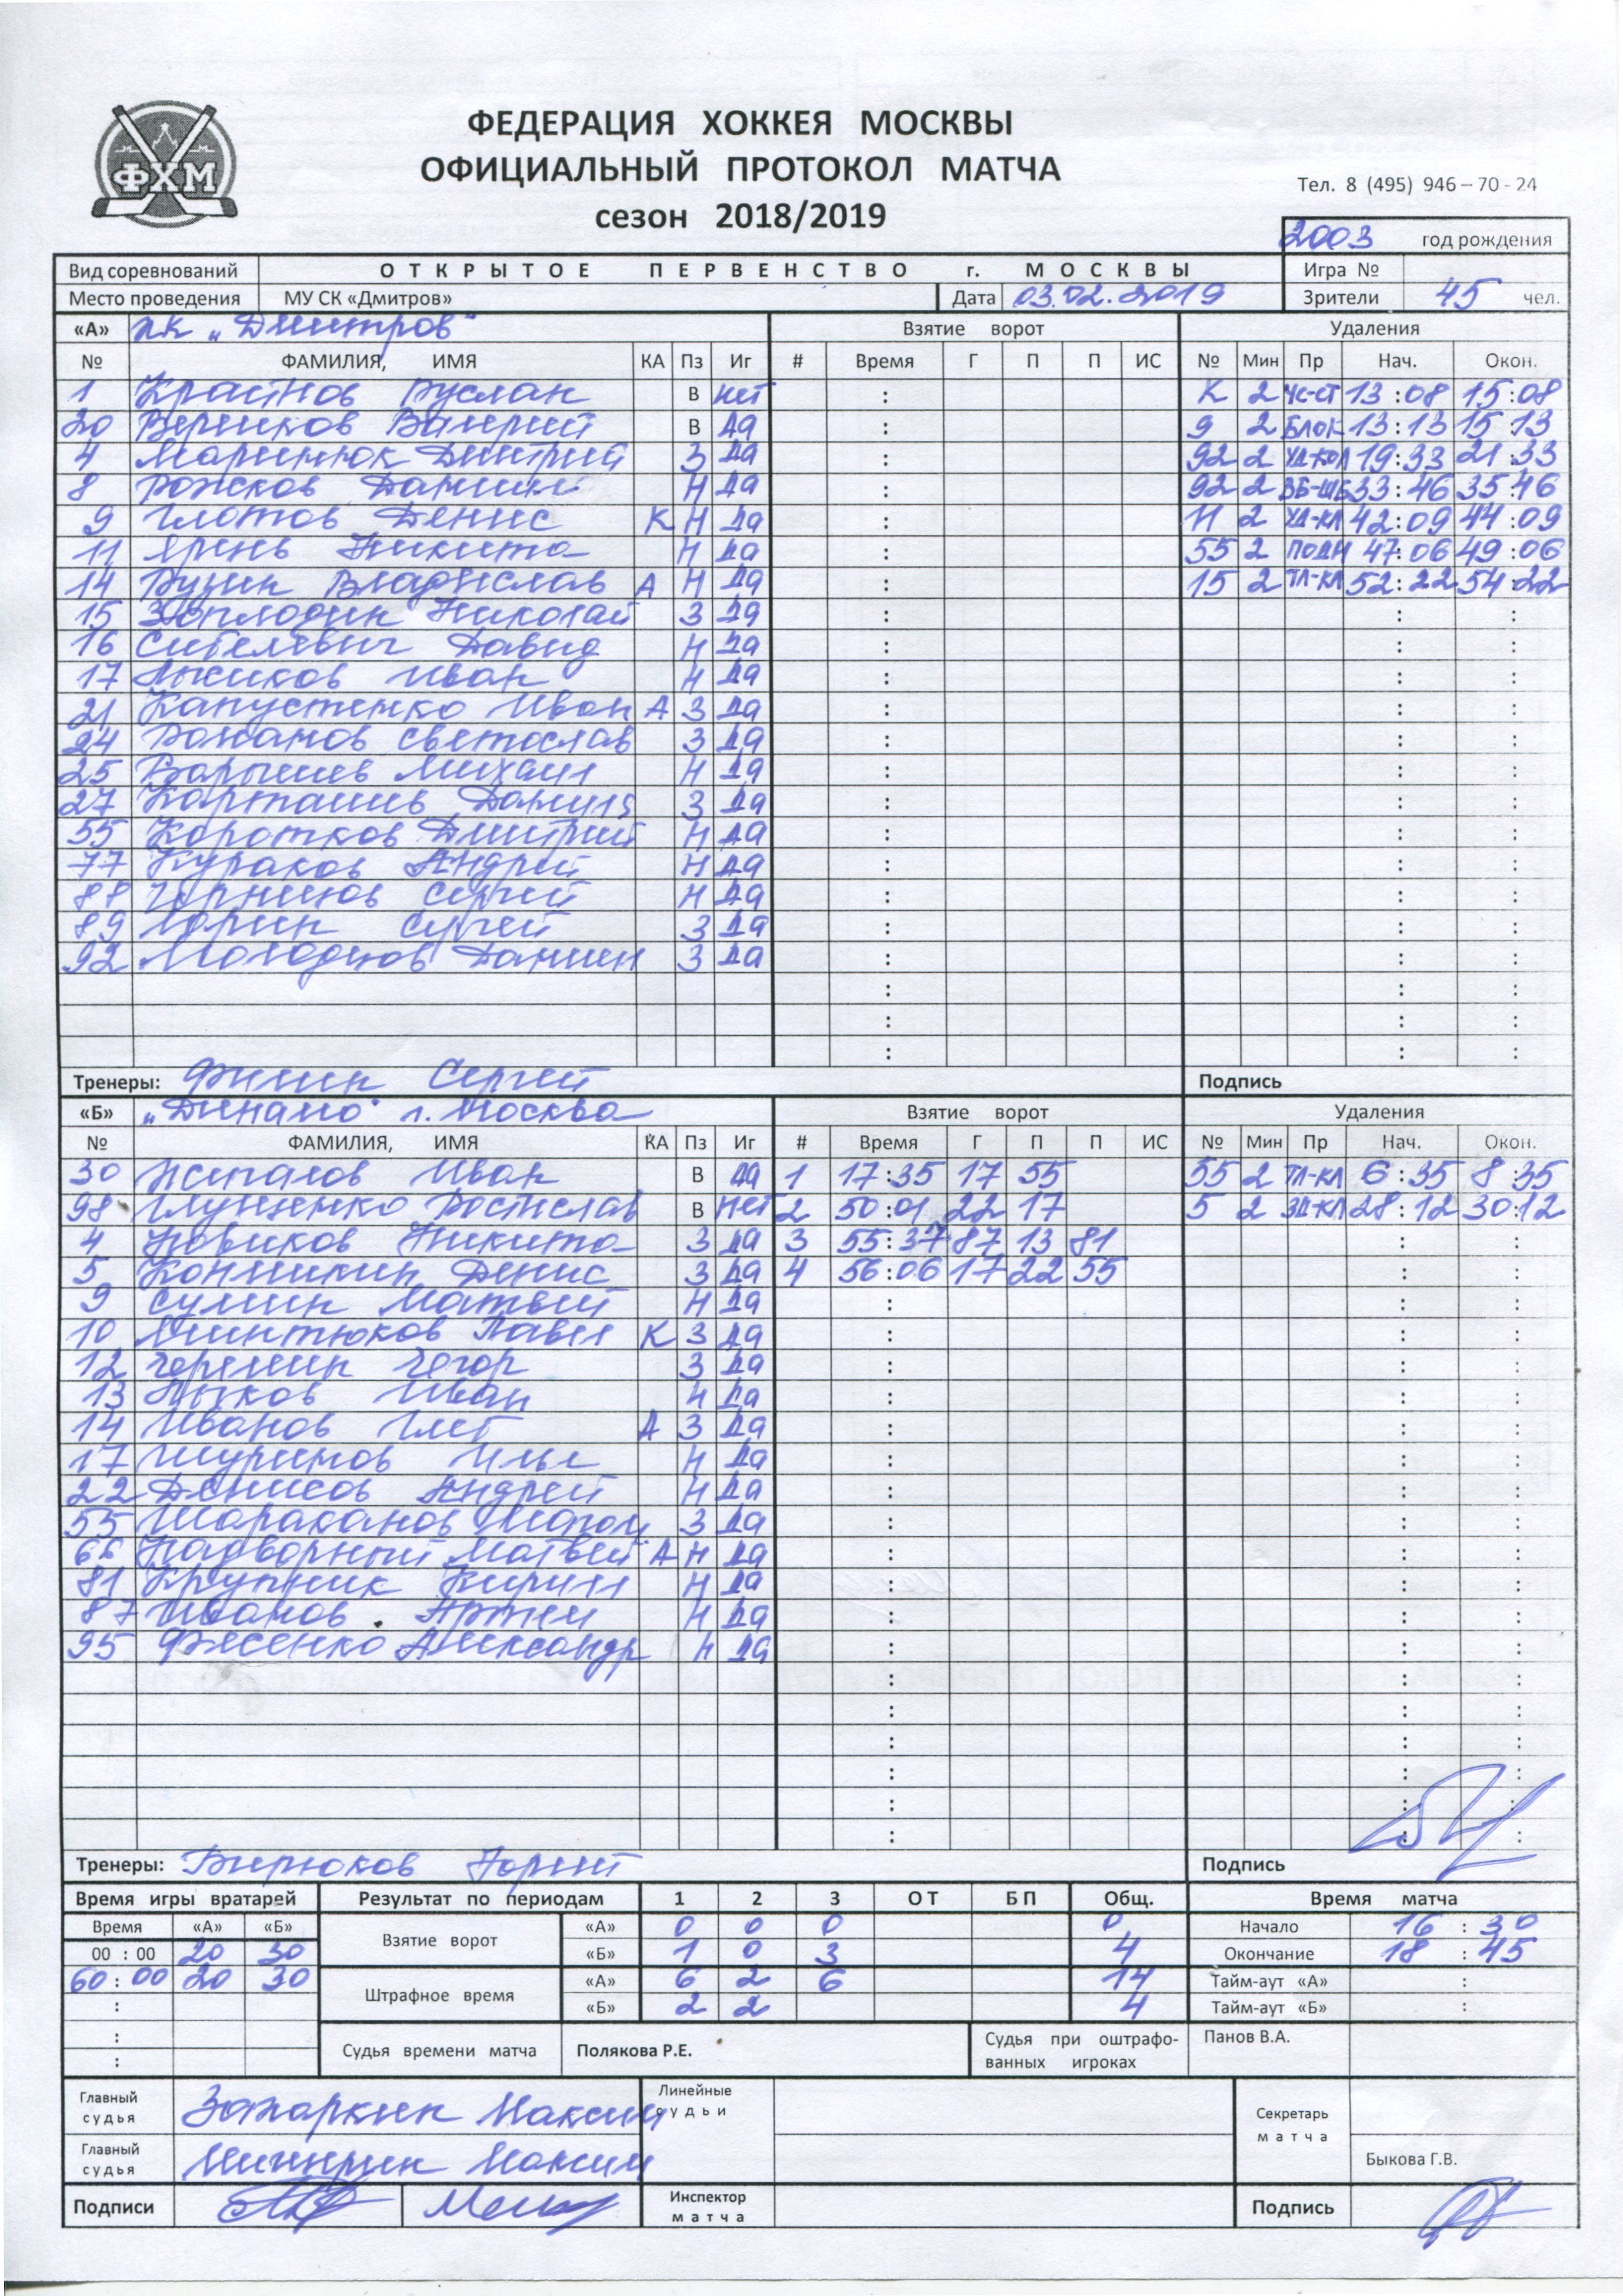 ФХМ
ФЕДЕРАЦИЯ ХОККЕЯ МОСКВЫ
ОФИЦИАЛЬНЫЙ ПРОТОКОЛ МАТЧА
Тел. 8 (495) 946–70-24
сезон 2018/2019
2003 год рождения
Вид соревнований ОТКРЫТОЕ ПЕРВЕНСТВО г. МОСКВЫ Игра №
Место проведения МУ СК «Дмитров» Дата 03.02.2019 Зрители 45 чел.
«А» ХК „Дмитров" Взятие ворот Удаления
№ ФАМИЛИЯ, ИМЯ КА Пз Иг # Время Г П П ИС № Мин Пр Нач. Окон.
1 Руслан В нет : К 2 13:08 15:08
20 Веренков Валерий В да : 9 2 БЛОК 13:13 15:13
4 Маринюк Дмитрий З да : 92 2 19:33 21:33
8 Рожков Даниил Н да : 92 2 33:46 35:46
9 Глотов Денис К Н да : 11 2 УД-КЛ 42:09 44:09
11 Ярень Никита Н да : 55 2 ПОДН 47:06 49:06
14 Владислав А Н да : 15 2 ТЛ-КЛ 52:22 54:22
15 Николай З да : : :
16 Давид Н да : : :
17 Лыжков Иван Н да : : :
21 Капустенко Иван А З да : : :
24 Рожанов Светослав З да : : :
25 Барышев Михаил Н да : : :
27 Карташев Данила З да : : :
55 Коротков Дмитрий Н да : : :
77 Кураков Андрей Н да : : :
88 Сергей Н да : : :
89 Сергей З да : : :
92 Молодцов Даниил З да : : :
: : :
: : :
: : :
Тренеры: Филин Сергей Подпись
«Б» „Динамо" г. Москва Взятие ворот Удаления
№ ФАМИЛИЯ, ИМЯ КА Пз Иг # Время Г П П ИС № Мин Пр Нач. Окон.
30 Жигалов Иван В да 1 17:35 17 55 55 2 ТЛ-КЛ 6:35 8:35
98 Глущенко Ростислав В нет 2 50:01 22 17 5 2 ЗД-КЛ 28:12 30:12
4 Новиков Никита З да 3 55:37 87 13 81 : :
5 Конюшкин Денис З да 4 56:06 17 22 55 : :
9 Сумин Матвей Н да : : :
10 Павел К З да : : :
12 Черемин Егор З да : : :
13 Лыков Иван Н да : : :
14 Иванов Глеб А З да : : :
17 Шуринов Илья Н да : : :
22 Денисов Андрей Н да : : :
55 Шараканов З да : : :
66 Надворный Матвей А Н да : : :
81 Крупник Кирилл Н да : : :
87 Иванов Артем Н да : : :
95 Фесенко Александр Н да : : :
: : :
: : :
: : :
: : :
: : :
: : :
Тренеры: Бирюков Подпись
Время игры вратарей Результат по периодам 1 2 3 ОТ БП Общ. Время матча
Время «А» «Б» Взятие ворот «А» 0 0 0 0 Начало 16 : 30
00 : 00 20 30 «Б» 1 0 3 4 Окончание 18 : 45
60:00 20 30 Штрафное время «А» 6 2 6 14 Тайм-аут «А» :
: «Б» 2 2 4 Тайм-аут «Б» :
:
:
Судья времени матча Полякова Р.Е. Судья при оштрафо-
ванных игроках Панов В.А.
Главный
судья Захаркин Максим Линейные
судьи Секретарь
матча
Главный
судья Максим Быкова Г.В.
Подписи Инспектор
матча Подпись